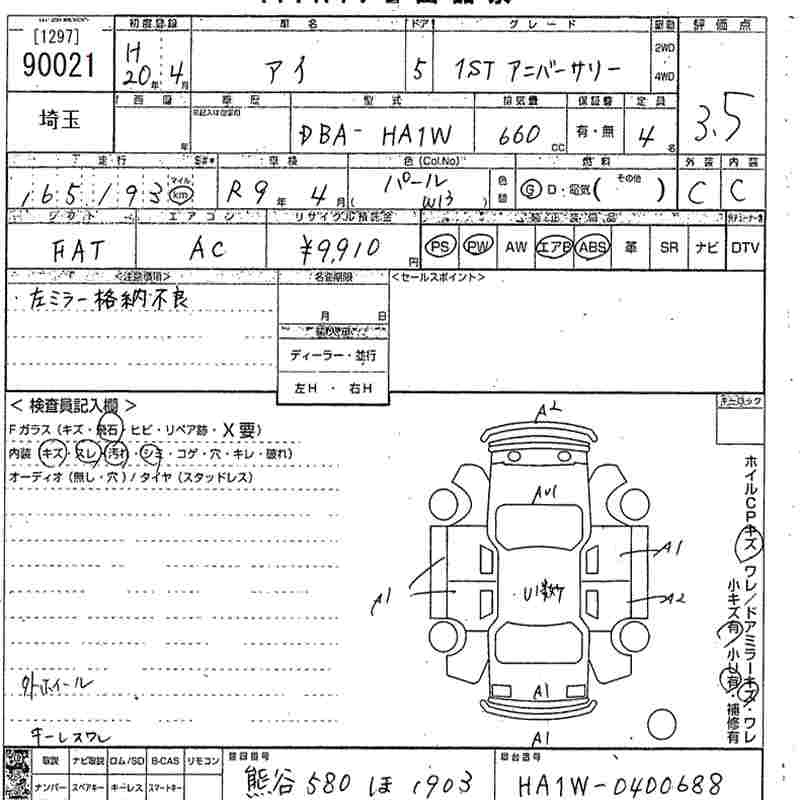 [1297]
90021
初度登録 車名 ドア グレード 駆動 評価点
H20年4月 アイ 5 1ST アニバーサリー 2WD 4WD 3.5
埼玉 車歴 型式 排気量 保証書 定員
年 DBA-HA1W 660cc 有・無 4名
走行 車検 色(Col.No) 燃料 外装 内装
165,193 マイル km R9年4月 パール W13 色替 G D・電気( その他 ) C C
シフト エアコン リサイクル預託金
FAT AC ¥9,910円 PS PW AW エアB ABS 革 SR ナビ DTV
<注意事項> 名変期限 <セールスポイント>
・左ミラー格納不良
月 日
ディーラー・並行
左H ・ 右H
＜ 検査員記入欄 ＞
Fガラス (キズ・飛石・ヒビ・リペア跡・X要)
内装 (キズ・スレ・汚れ・シミ・コゲ・穴・キレ・破れ)
オーディオ (無し・穴) / タイヤ (スタッドレス)
キーロック
A2
AU1
A1
A1
U1数ケ
A2
A1
A1
ホイルCPキズ ワレ/ドアミラーキズ・ワレ
小キズ有 小U有・補修有
外ホイール
キーレスワレ
取説 ナビ取説 ロム/SD B-CAS リモコン 登録番号 車台番号
ナンバー スペアキー キーレス スマートキー 熊谷 580 ほ 1903 HA1W-0400688